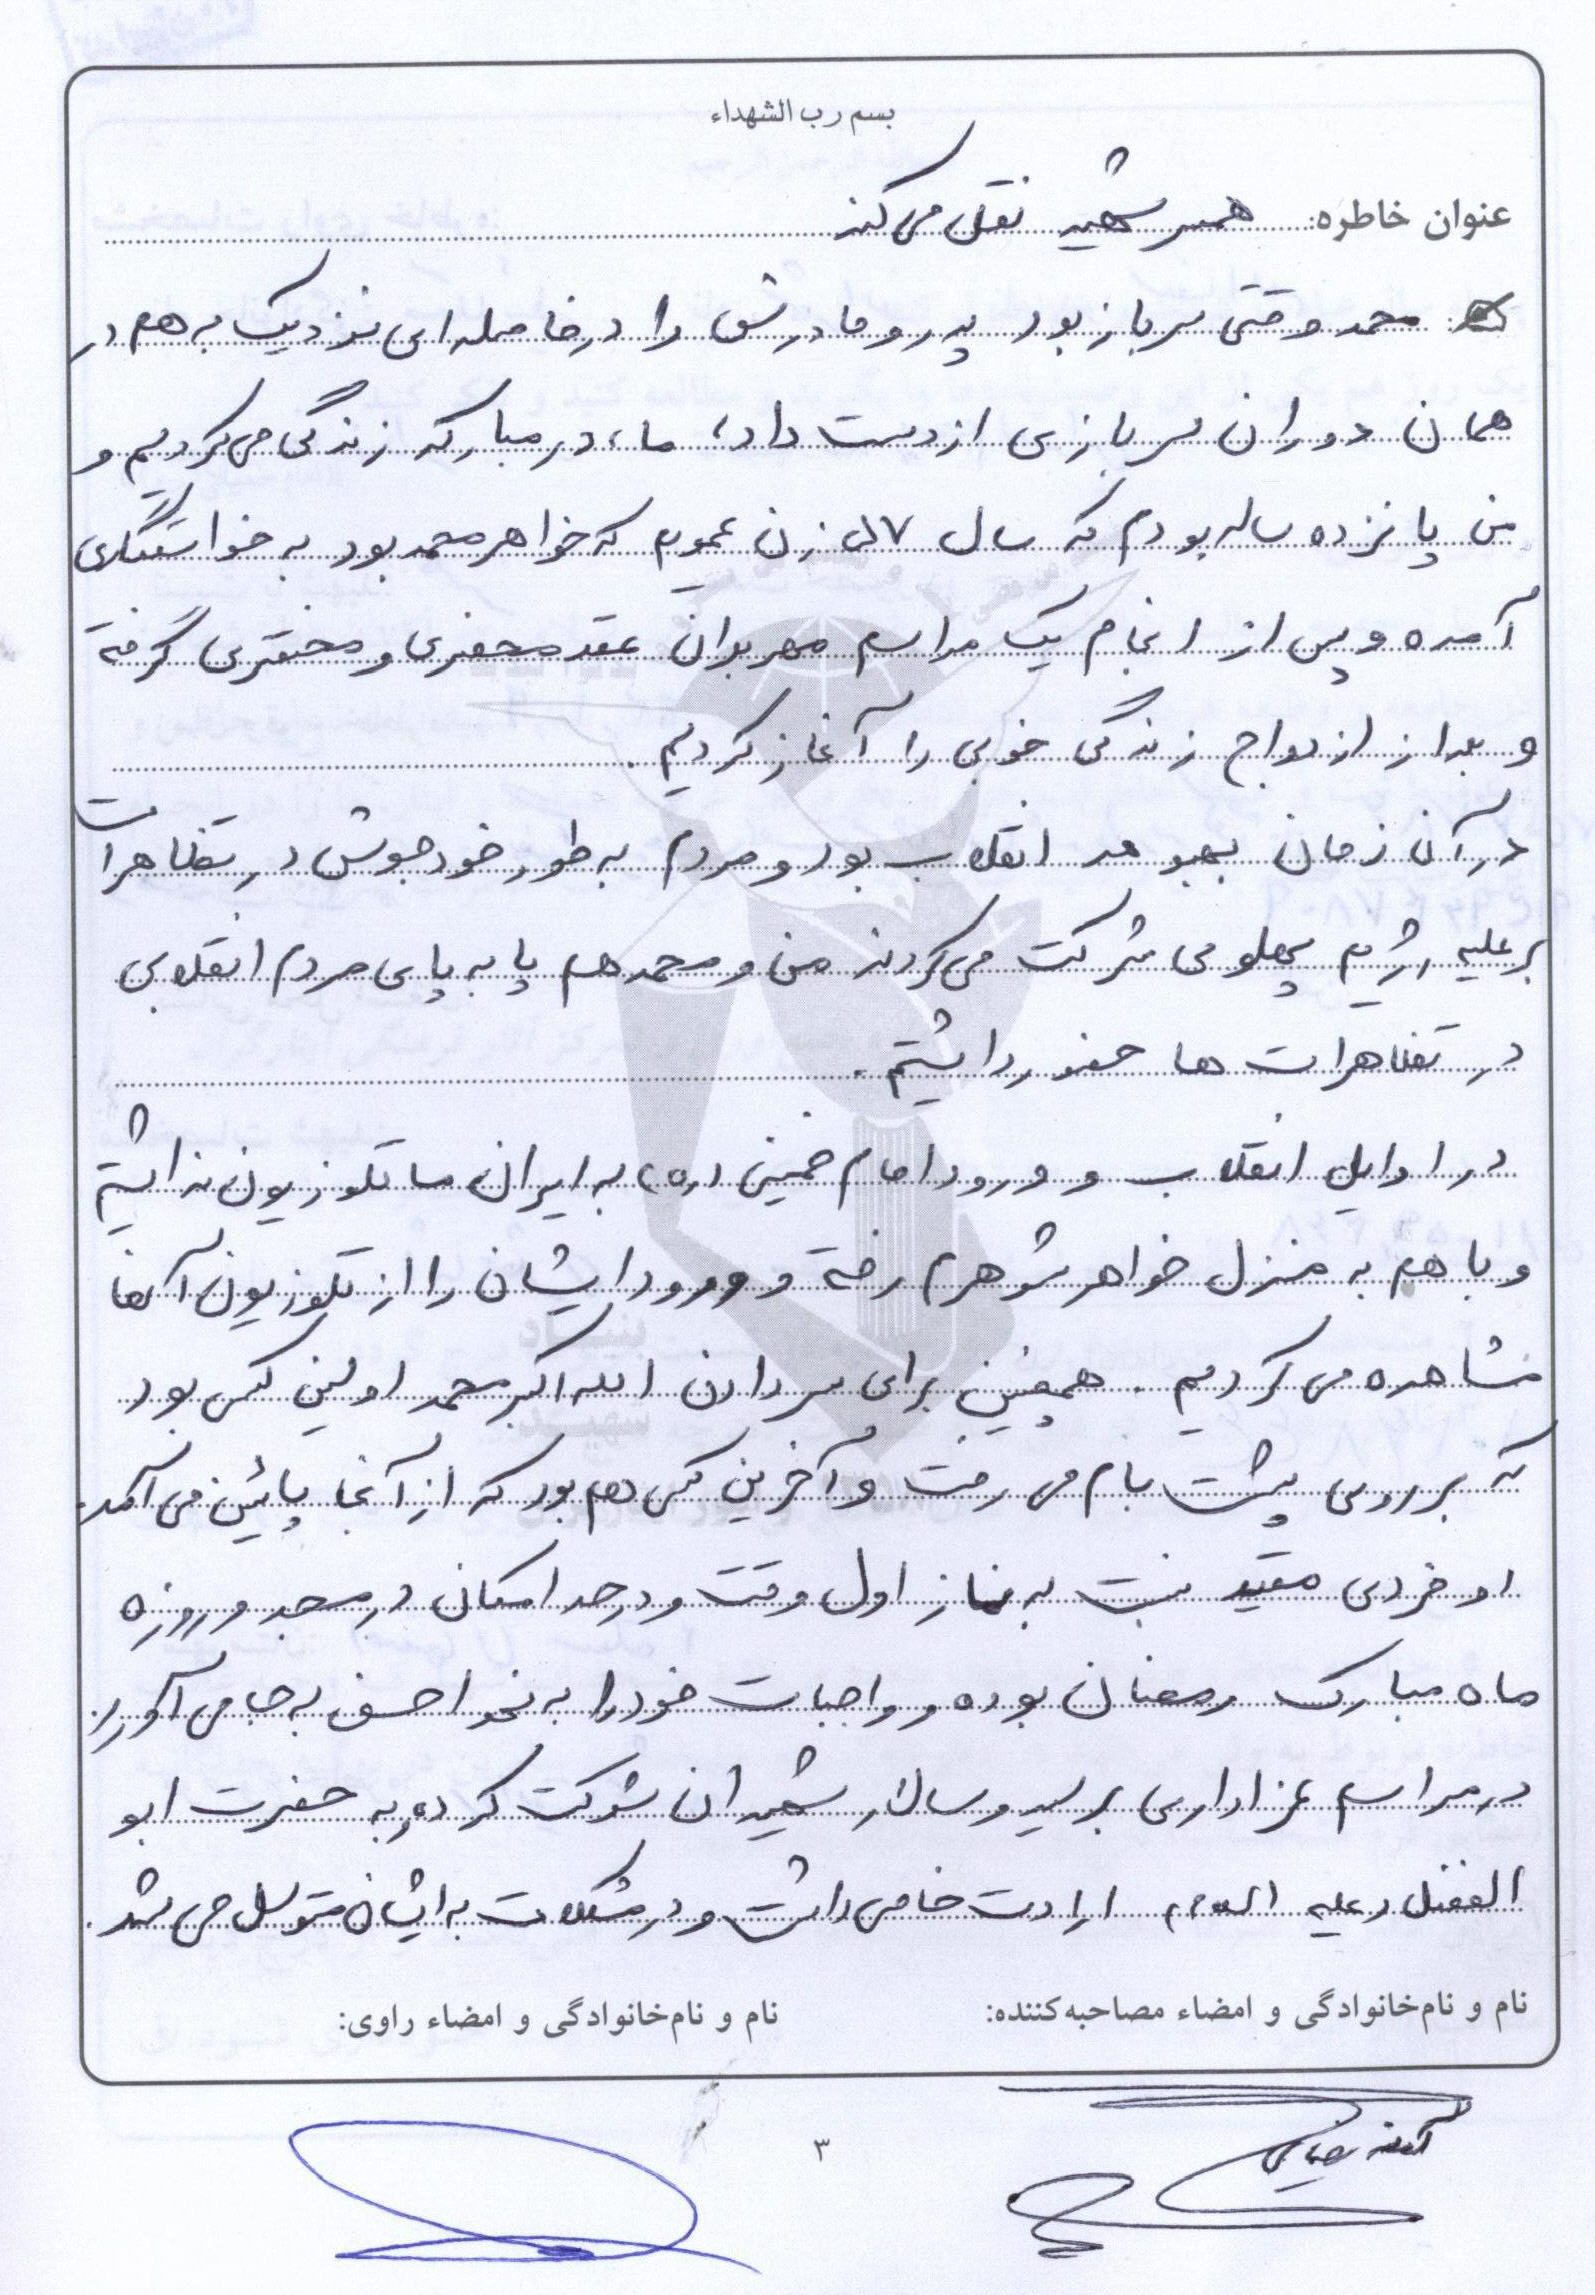 بسم رب الشهداء
عنوان خاطره: همسر شهید نقل می کند
محمد وقتی سرباز بود پدر و مادرش را در فاصله ای نزدیک به هم در
همان دوران سربازی از دست داد، ما، در مبارکه زندگی می کردیم و
من پانزده ساله بودم که سال ۵۷ زن عمویم که خواهر محمد بود به خواستگاری
آمده و پس از انجام یک مراسم مهربران عقد محضری و مختصری گرفته
و بعد از ازدواج زندگی خوبی را آغاز کردیم.
در آن زمان بهبوهه انقلاب بود و مردم به طور خودجوش در تظاهرات
بر علیه رژیم پهلوی شرکت می کردند من و محمد هم پا به پای مردم انقلابی
در تظاهرات ها حضور داشتیم.
در اوایل انقلاب و ورود امام خمینی (ره) به ایران ما تلوزیون نداشتیم
و با هم به منزل خواهر شوهرم رفته و ورود ایشان را از تلوزیون آنها
مشاهده می کردیم. همچنین برای سر دادن الله اکبر محمد اولین کسی بود
که بر روی پشت بام می رفت و آخرین کس هم بود که از آنجا پائین می آمد.
او فردی مقید نسبت به نماز اول وقت و در حد امکان در مسجد و روزه
ماه مبارک رمضان بوده و واجبات خود را به نحو احسن به جا می آورد.
در مراسم عزاداری بر سید و سالار شهیدان شرکت کرده، به حضرت ابو
الفضل (علیه السلام) ارادت خاصی داشت و در مشکلات به ایشان متوسل می شد.
نام و نام خانوادگی و امضاء مصاحبه کننده: نام و نام خانوادگی و امضاء راوی:
۳
بنیاد
شهید